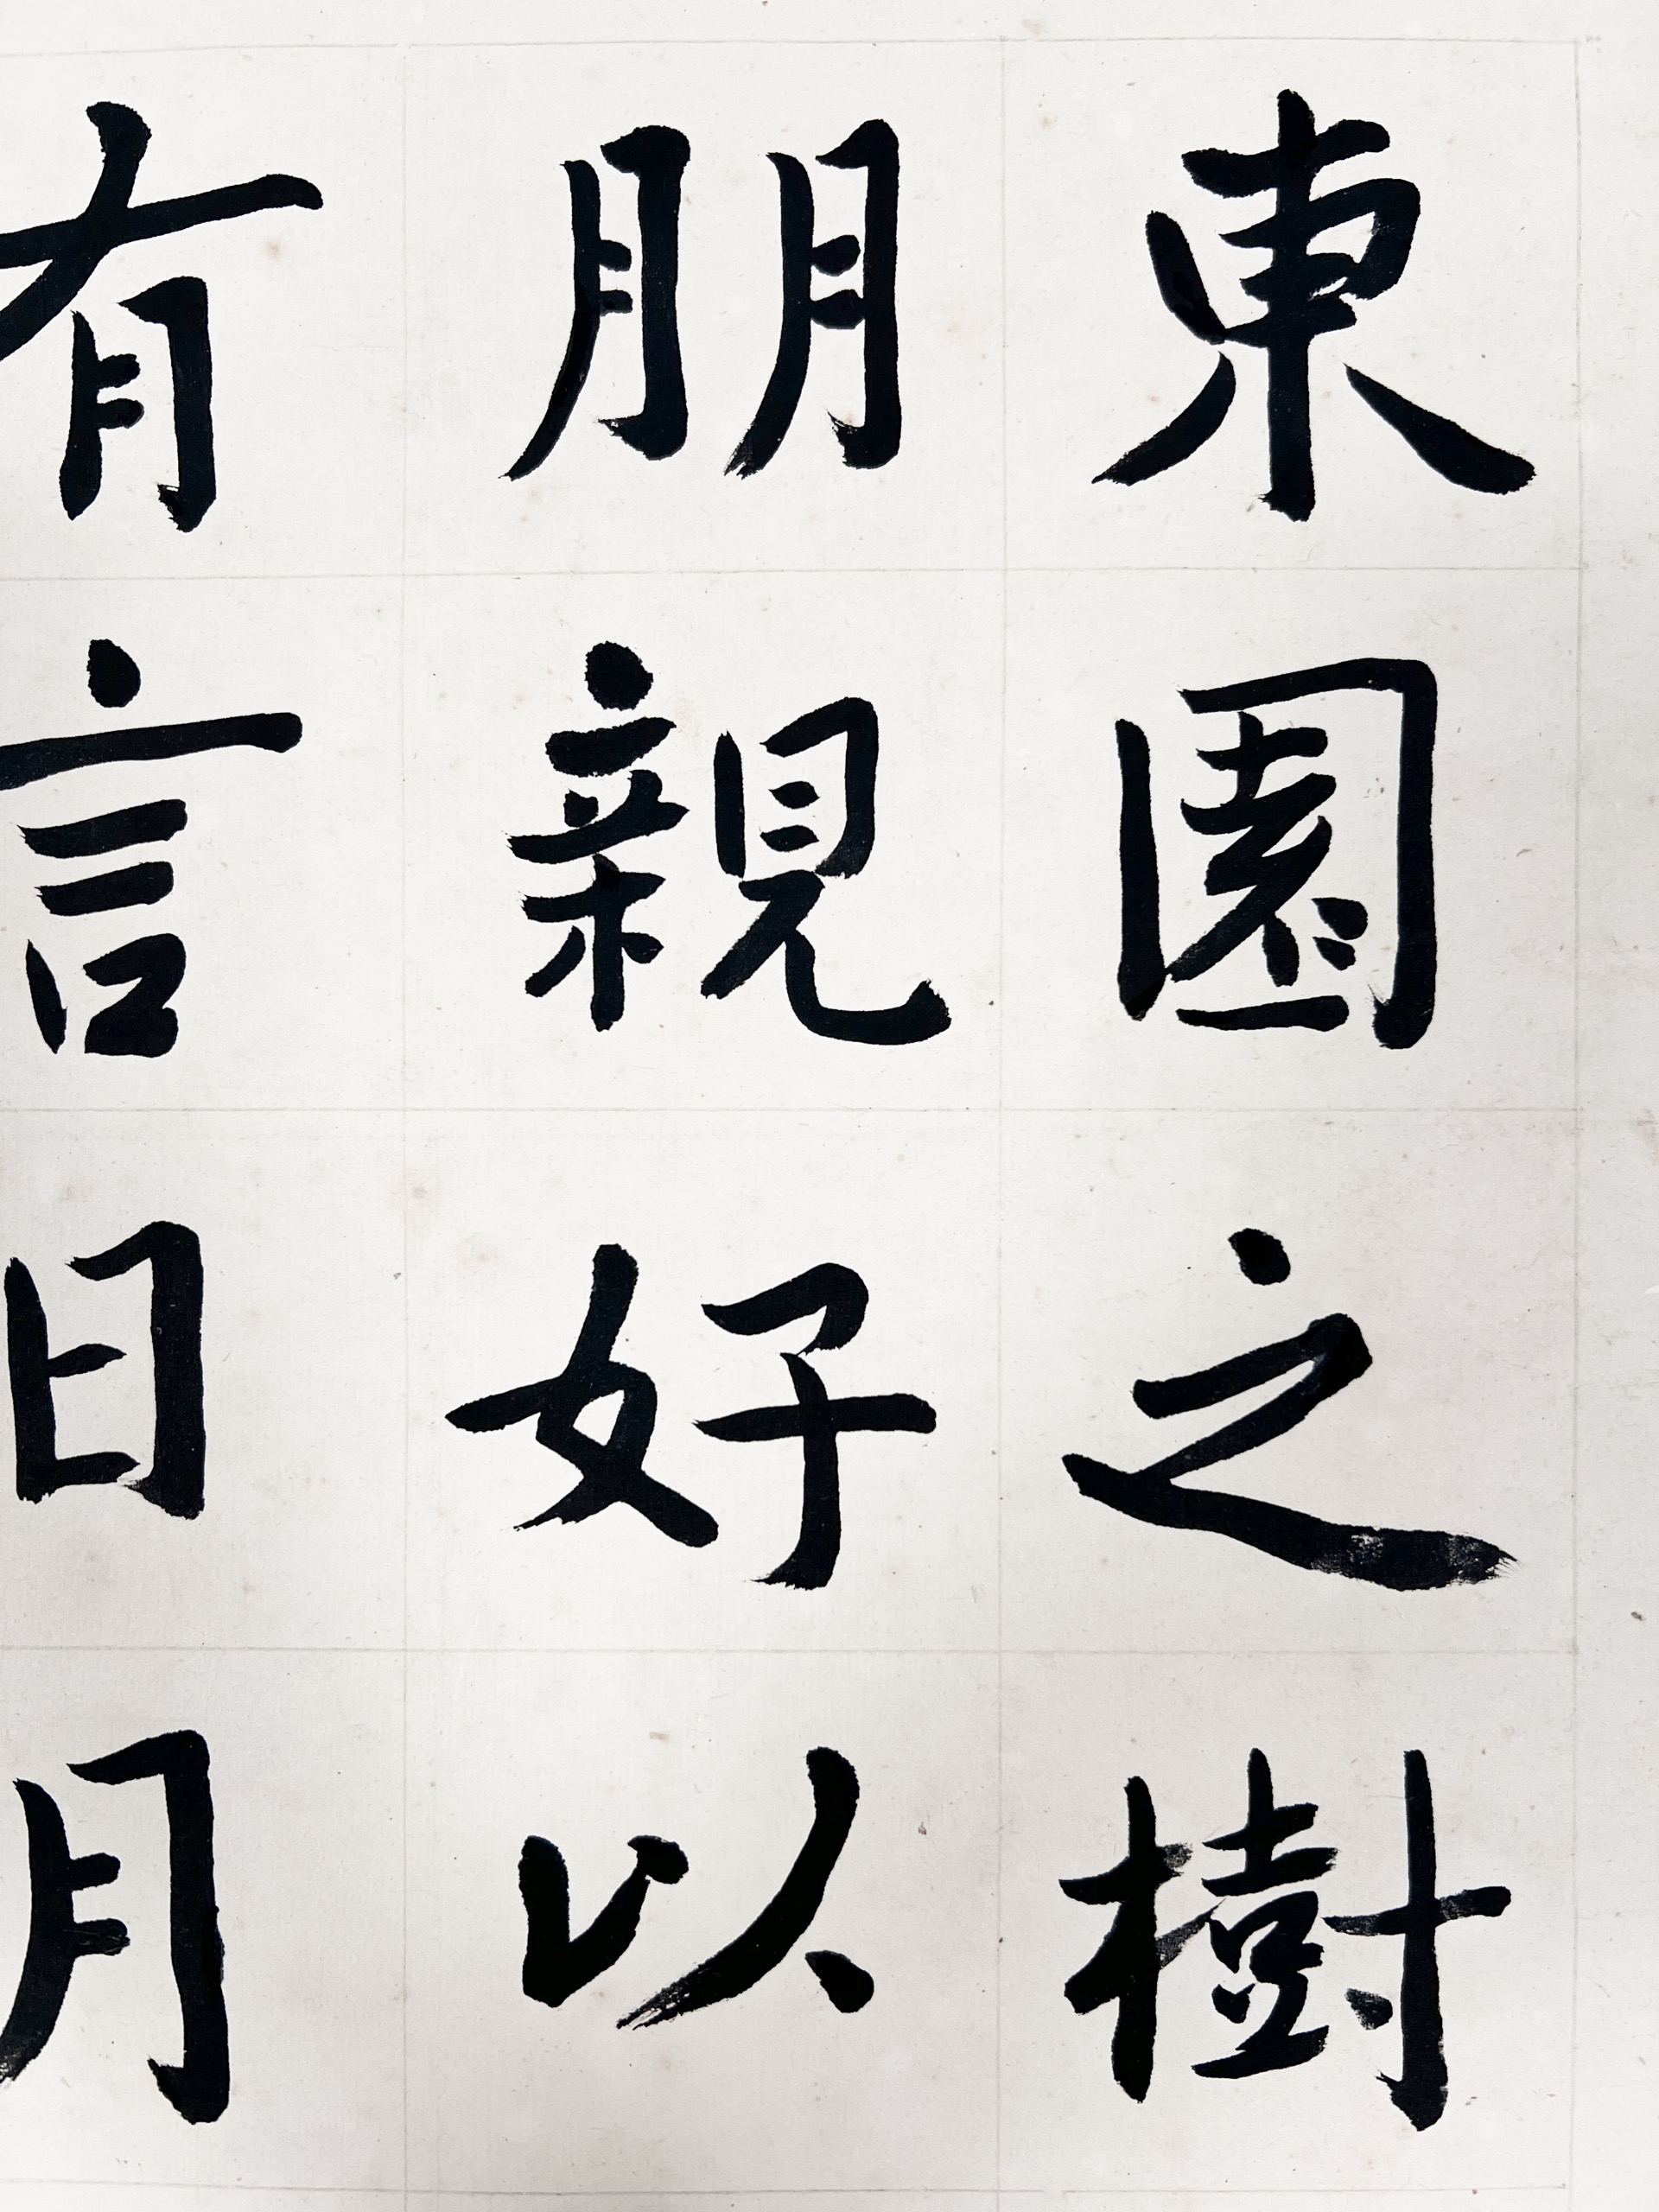 東園之樹
朋親好以
有言日月